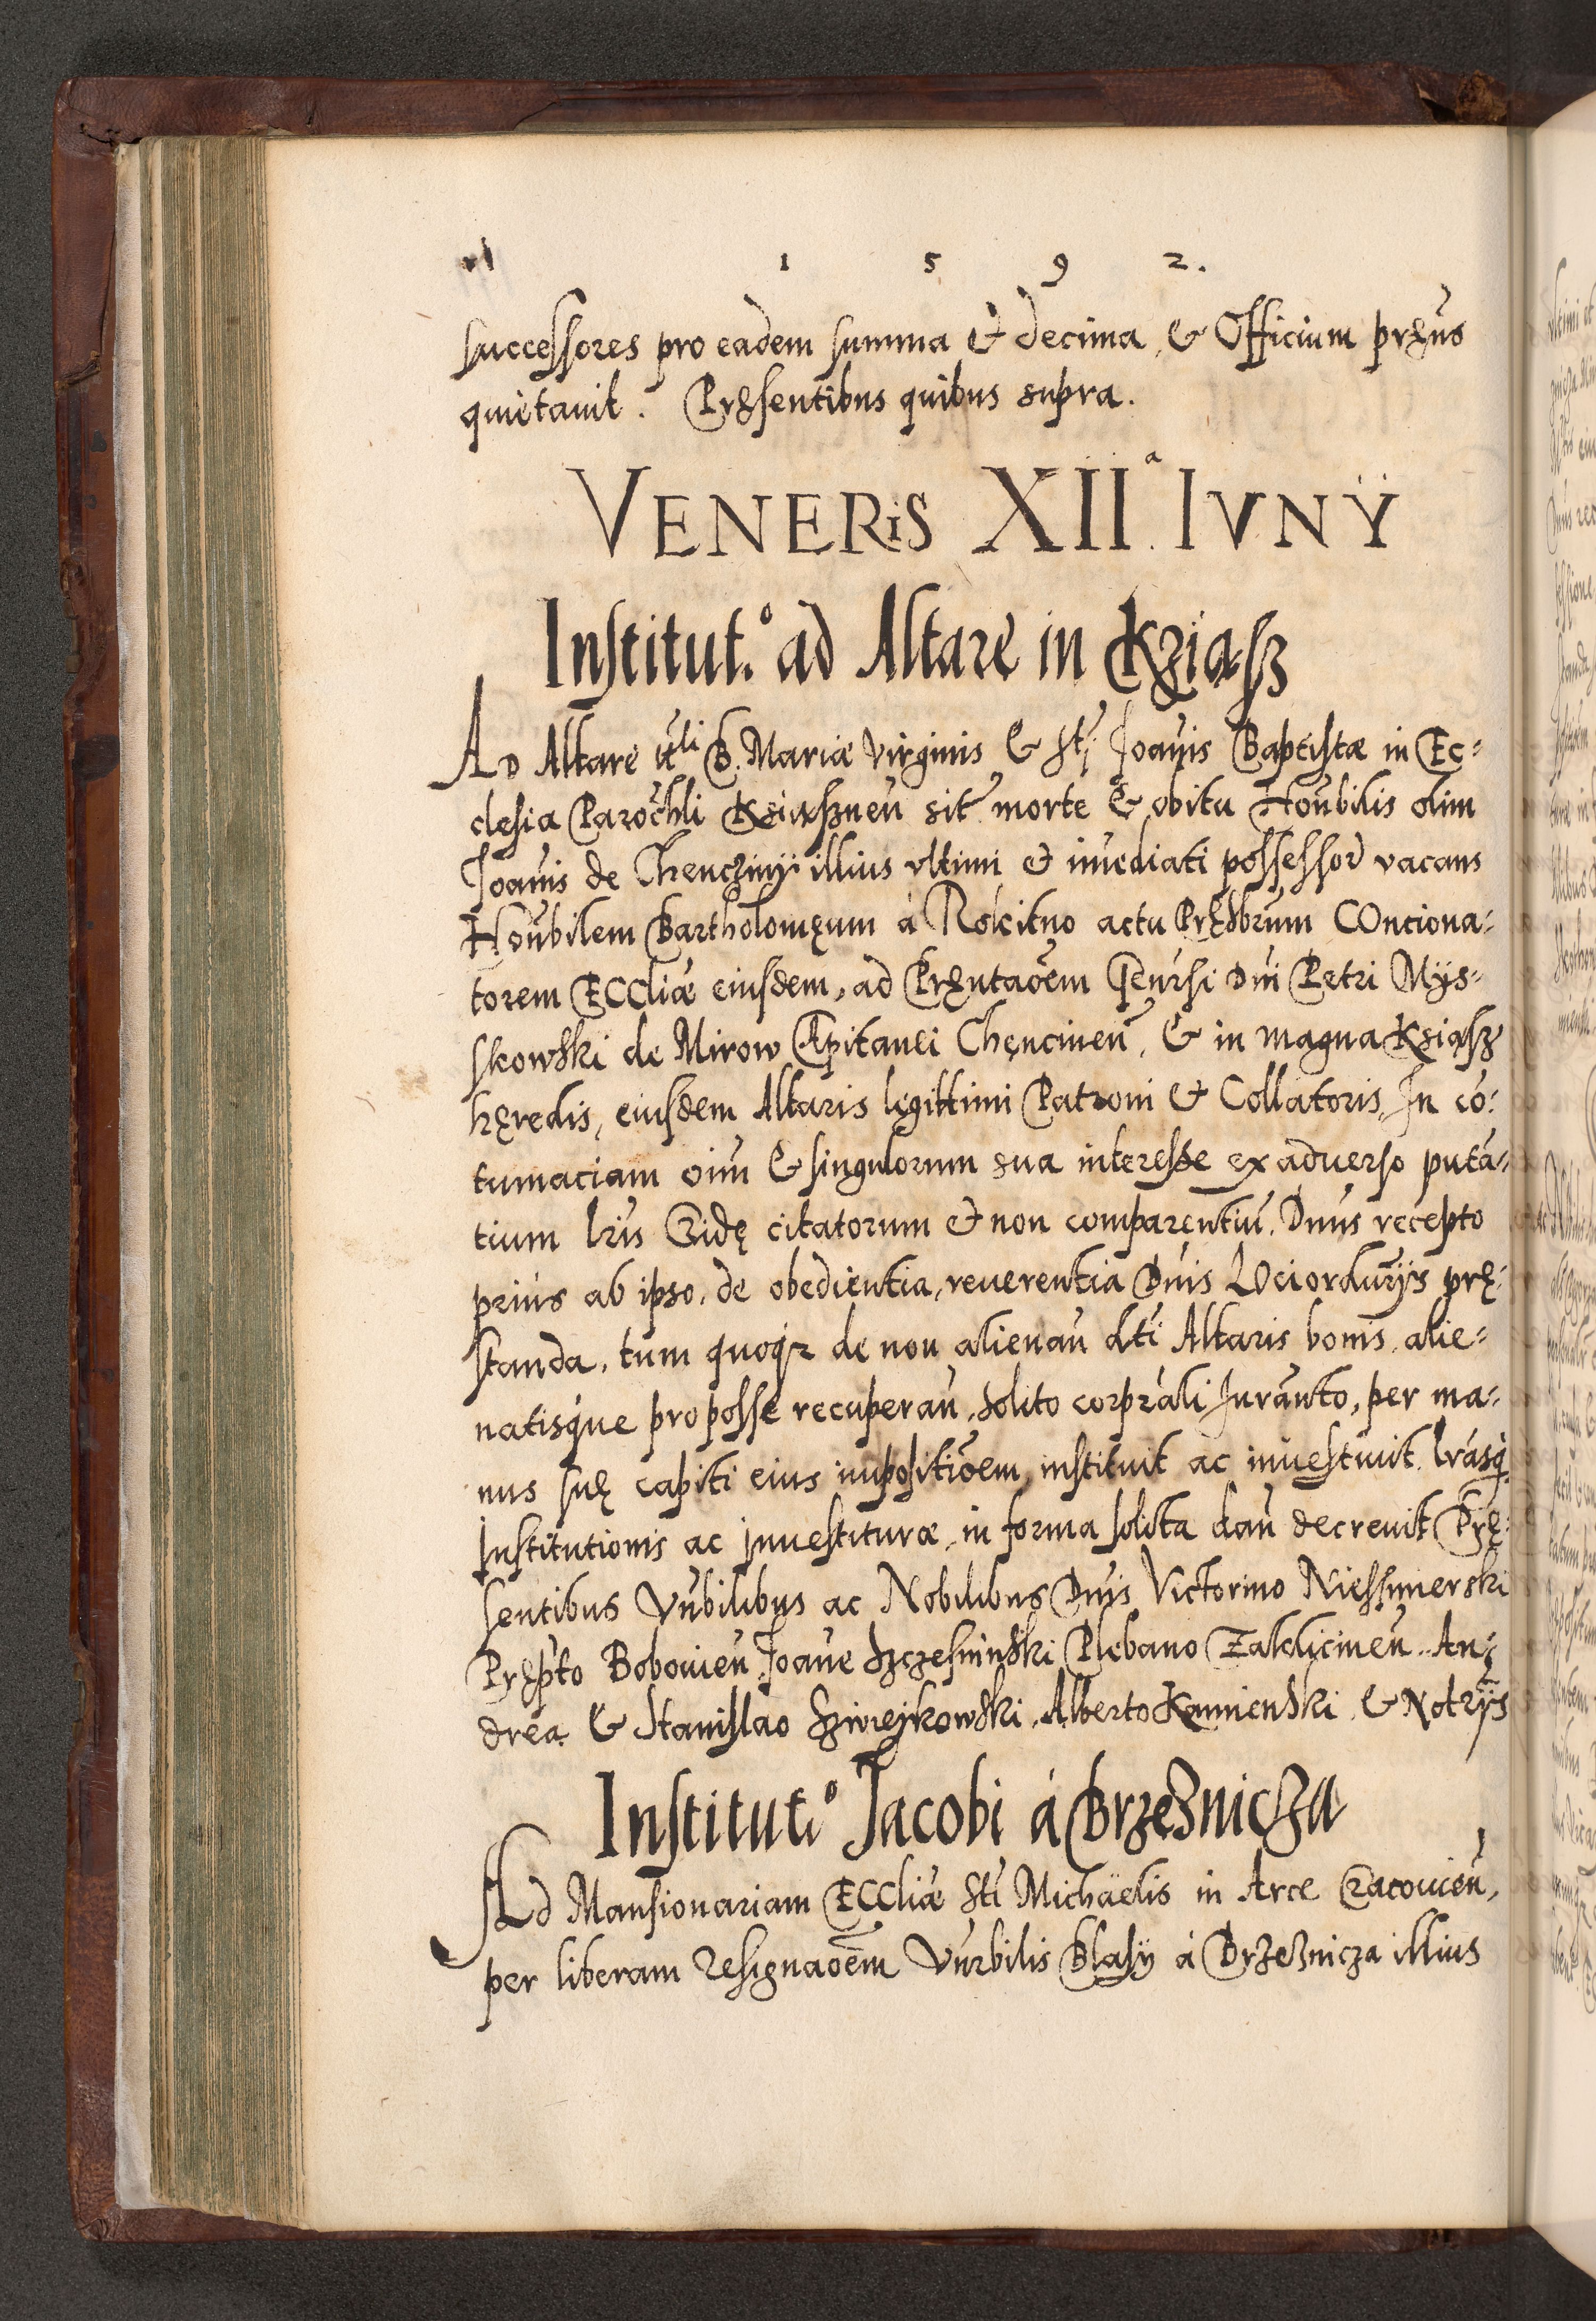 1 5 9 2.
successores pro eadem summa et decima, & Officium pręns̃
quietavit. Pręsentibus quibus supra.
VENERiS XIIª IVNŸ
Institut.º ad Altare in Kziąsz
AD Altare ttli B. Mariæ Virginis & Sti Joan̄is Baptistæ in Ec-
clesia Parochli Ksiąszneñ sit morte & obitu Hoñbilis olim
Joañis de Chenczinÿ illius vltimi et im̄ediati possessor vacans
Hoñbilem Bartholomęum á Rokitno actu Pręsbr̃um COnciona-
torem ECCliæ eiusdem, ad Pręntaõem Geñrsi Dñi Petri Mÿs-
skowski de Mirow Capitanei Chęncineñ, & in magna Ksiąsz
hęredis, eiusdem Altaris legittimi Patroni & Collatoris, In cõ-
tumaciam oim̃ & singulorum sua interesse ex aduerso putã-
tium lr̃is Cridę citatorum et non comparentiũ. Dnus recepto
prius ab ipso, de obedientia, reuerentia Dñis LOciordur̃ÿs prę-
standa, tum quoqz de non alienañ dti Altaris bonis, alie-
natisque pro posse recuperañ, solito corprali Juram̃to, per ma-
nus suę capiti eius impositiõem, instituit ac inuestiuit. lr̃asq
Institutionis ac Inuestituræ, in forma solita dañ decreuit Prę-
sentibus Vñbilibus ac Nobilibus Dñis Victorino Niessmierski
Pręp̃to Boboueñ Joañe Szczesninski Plebano Zakliczineñ. An-
drea & Stanislao Szwieykowski, Alberto Kamienski, & Notrÿs
Institutiº Jacobi á Brzeznicza
Ad Mansionariam ECCliæ Sti Michäelis in Arce Cracouieñ,
per liberam resignaõem Vñrbilis Blasÿ á Brzeznicza illius